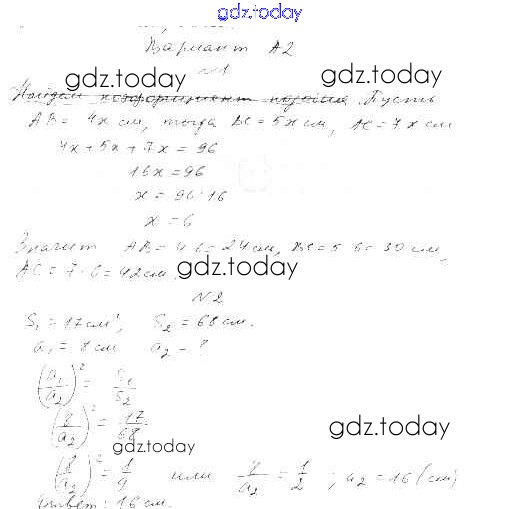 gdz.today
Вариант А2
gdz.today gdz.today
№1
Найдем коэффициент Пусть
АВ = 4х см, тогда ВС = 5х см, АС = 7х см
4х + 5х + 7х = 96
16х = 96
х = 96 : 16
х = 6
Значит АВ = 4·6 = 24 см, ВС = 5·6 = 30 см,
АС = 7·6 = 42 см.
gdz.today
№2
S₁ = 17 см², S₂ = 68 см.
a₁ = 8 см a₂ - ?
(a₁/a₂)² = S₁/S₂
(8/a₂)² = 17/68
gdz.today
gdz.today
(8/a₂)² = 1/4 или 8/a₂ = 1/2 ; a₂ = 16 (см)
Ответ: 16 см.